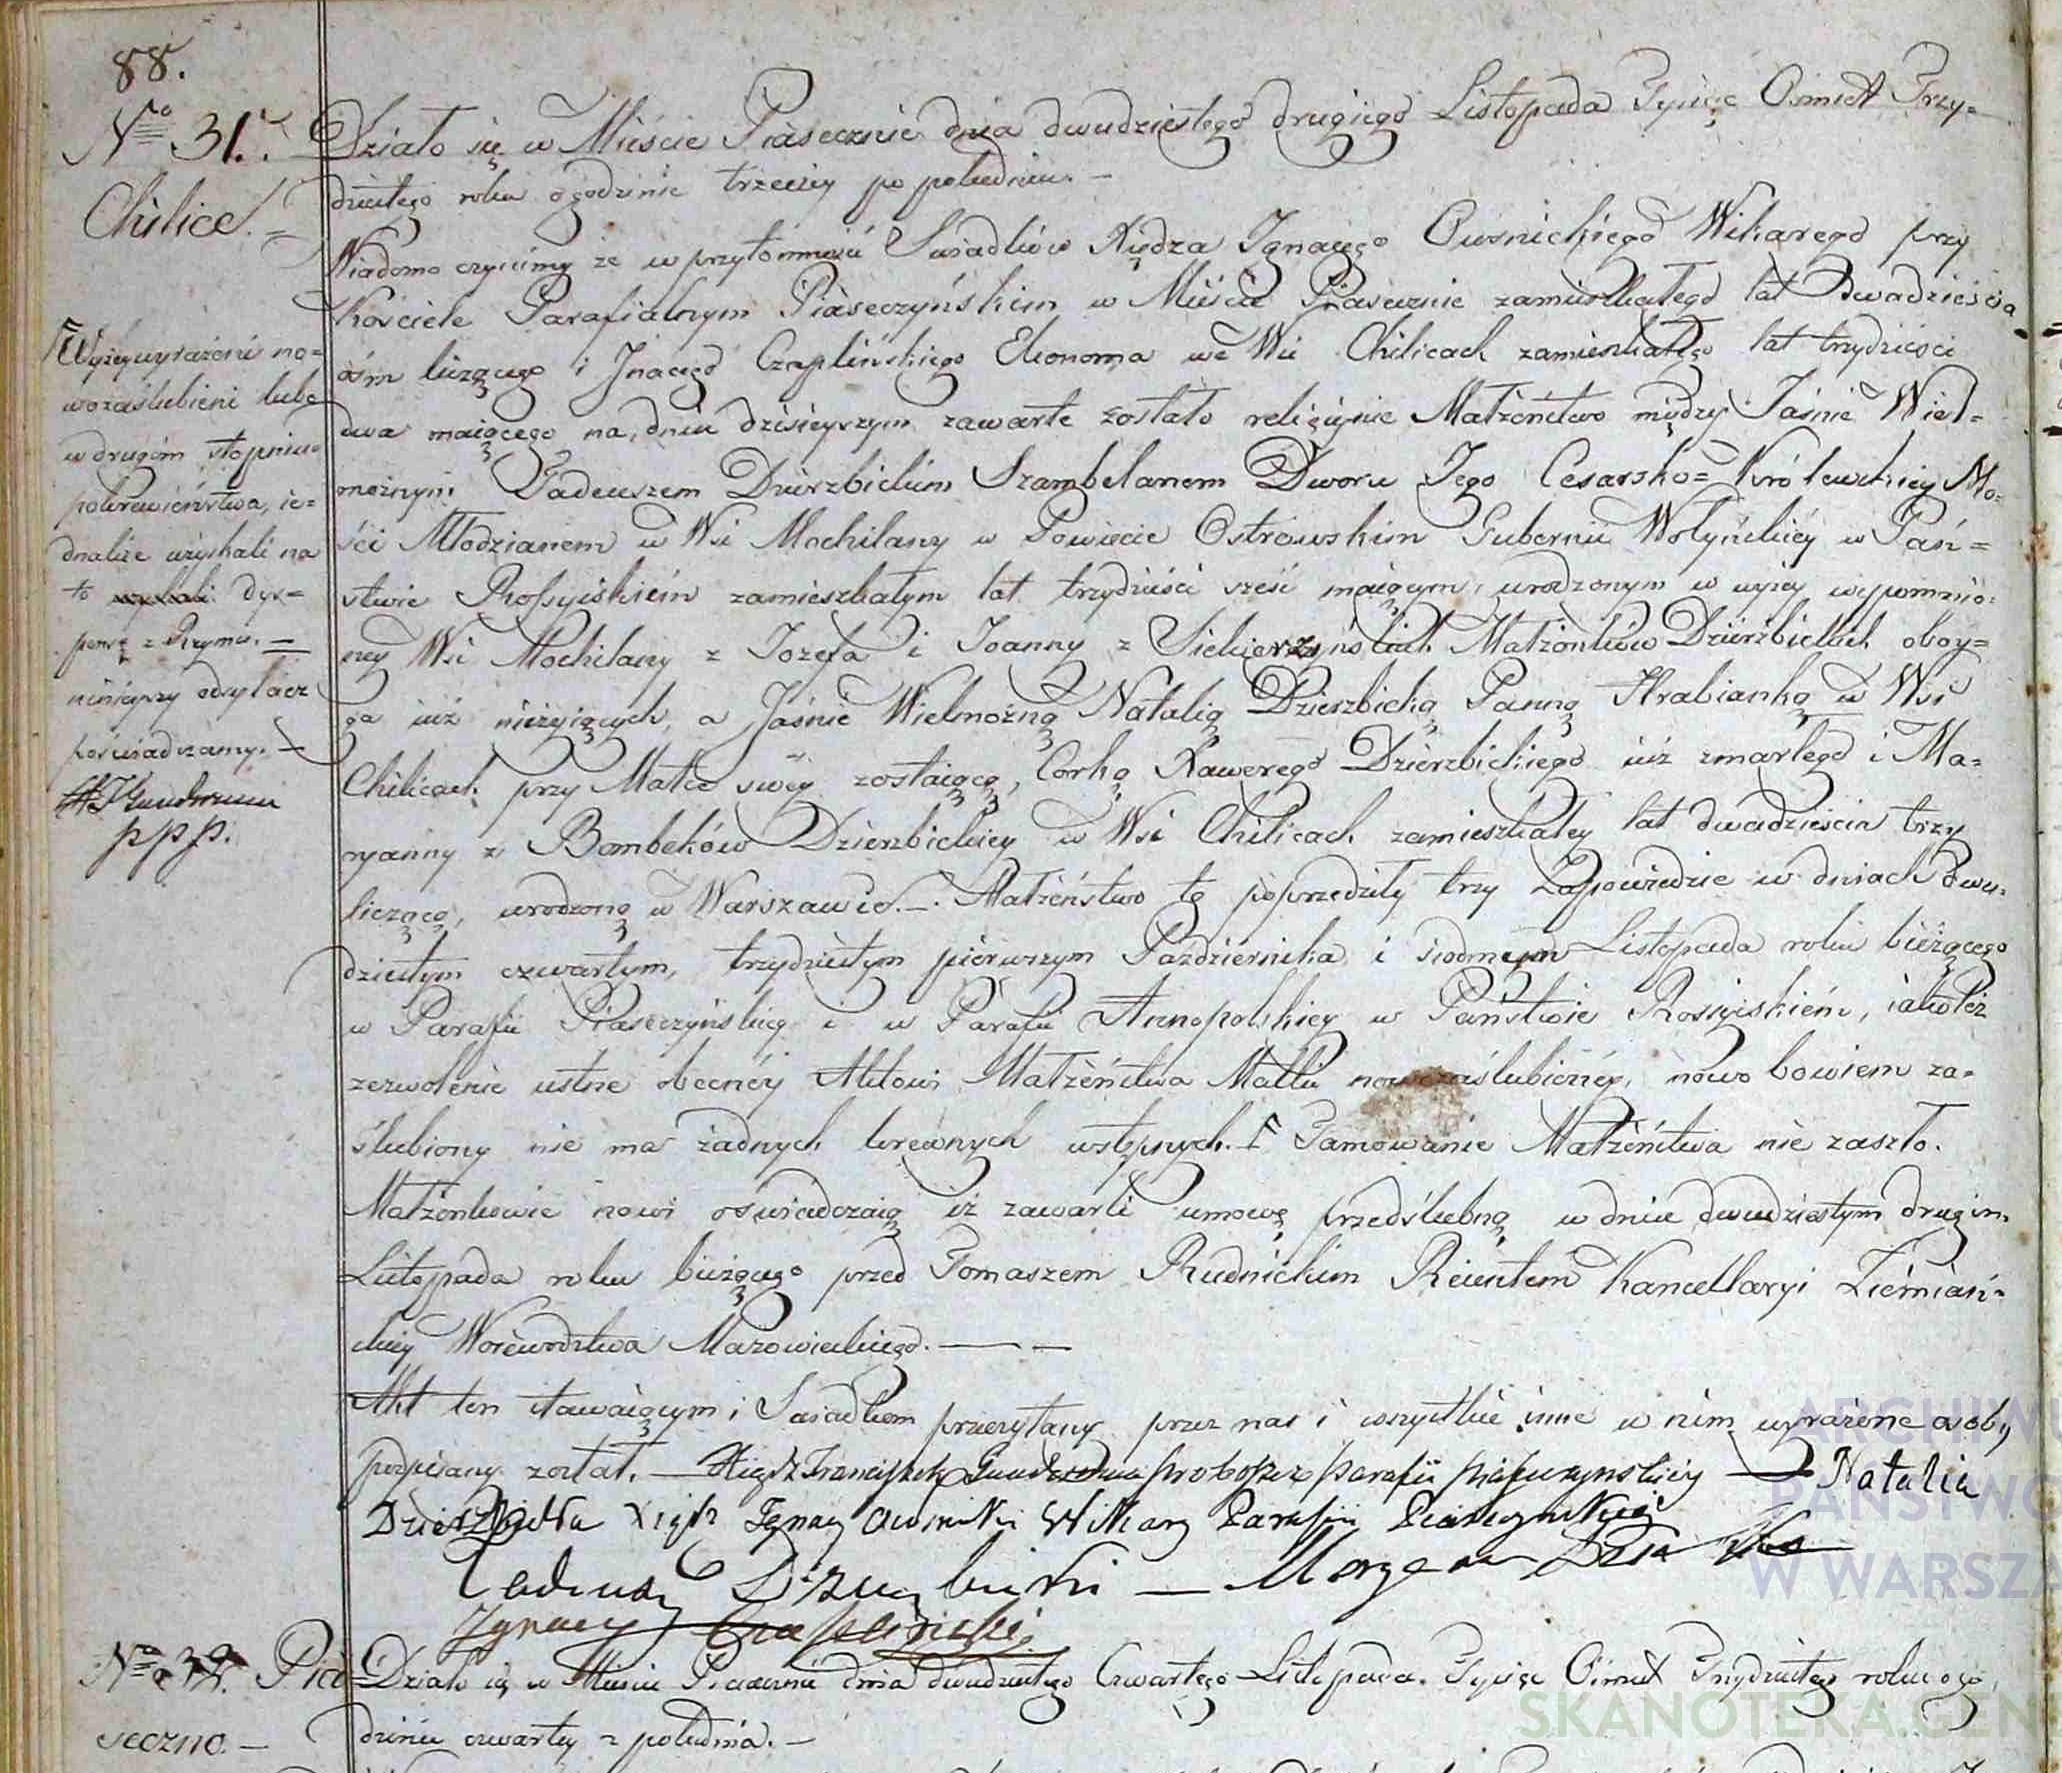 88.
No 31.
Chilice. —
Działo się w Mieście Piasecznie dnia dwudziestego drugiego Listopada Tysiąc Ośmset Trzy-
dziestego roku o godzinie trzeciey po południu. —
Wiadomo czyniemy że w przytomności Swiadków Xiędza Ignacego Owsnickiego Wikarego przy
Kościele Parafialnym Piaseczyńskim w Mieście Piasecznie zamieszkałego lat dwadzieścia
ośm liczącego i Jnacego Czaplińskiego Ekonoma we Wsi Chilicach zamieszkałego lat trzydzieści
dwa maiącego na dniu dzisieyszym zawarte zostało religiynie Małżeństwo między Jaśnie Wiel-
możnym Tadeuszem Dzierzbickim Szambelanem Dworu Jego Cesarsko=Królewskiey Mo-
ści Młodzianem w Wsi Mochilany w Powiecie Ostrowskim Gubernii Wołyńskiéy w Pań=
stwie Rossyiskiém zamieszkałym lat trzydzieści sześć maiącym, urodzonym w wyżey wspomnio-
ney Wsi Mochilany z Jozefa i Joanny z Siekierzyńskich Małżonków Dzierzbickich oboy=
ga iuż nieżyiących, a Jaśnie Wielmożną Natalią Dzierzbicką Panną Hrabianką w Wsi
Chilicach przy Matce swéy zostaiącą, Corką Xawerego Dzierzbickiego iuż zmarłego i Ma-
ryanny z Bombeków Dzierzbickiey w Wsi Chilicach zamieszkałey lat dwadzieścia trzy
liczącą, urodzoną w Warszawie. — Małżeństwo to poprzedziły trzy Zapowiedzie w dniach dwu-
dziestym czwartym, trzydziestym pierwszym Pazdziernika i siodmym Listopada roku bieżącego
w Parafii Piaseczyńskiey i w Parafii Annopolskiey w Państwie Rossyiskiém, iakoteż
zezwolenie ustne obecnéy Aktowi Małżeństwa Matki nowozaślubionéy, nowo bowiem za-
ślubiony nie ma żadnych krewnych wstępnych. Ƒ Tamowanie Małżeństwa nie zaszło.
Małżonkowie nowi oświadczaią iż zawarli umowę przedślubną w dniu dwudziestym drugim
Listopada roku bieżącego przed Tomaszem Rudnickim Reientem Kancellaryi Ziemiań-
skiey Woiewodztwa Mazowieckiego. — —
Akt ten stawaiącym i Swiadkom przeczytany przez nas i wszystkie inne w nim wyrażone osoby
podpisany został. — Xiądz Franciszek proboszcz parafii piaseczynskiey — Natalia
Dzierzbicka Xiądz Ignacy Owsnicki Wikary Parafii Piaseczynskiej
Tadeusz Dzierzbicki —
Ignacy Czapliński
Ƒ Wyżey wyrażeni no=
wozaślubieni lubo
w drugim stopniu
pokrewieństwa, ie=
dnakże uzyskali na
to dys=
pensę z Rzymu. —
ninieyszy odsyłacz
poświadczamy. —
p p p.
No 32. Pia
seczno. —
Działo się w Mieście Piasecznie dnia dwudziestego Czwartego Listopada Tysiąc Ośmset Trzydziestego roku o go
dzinie czwartey z południa. —
ARCHIWU
PAŃSTWO
W WARSZA
SKANOTEKA.GEN